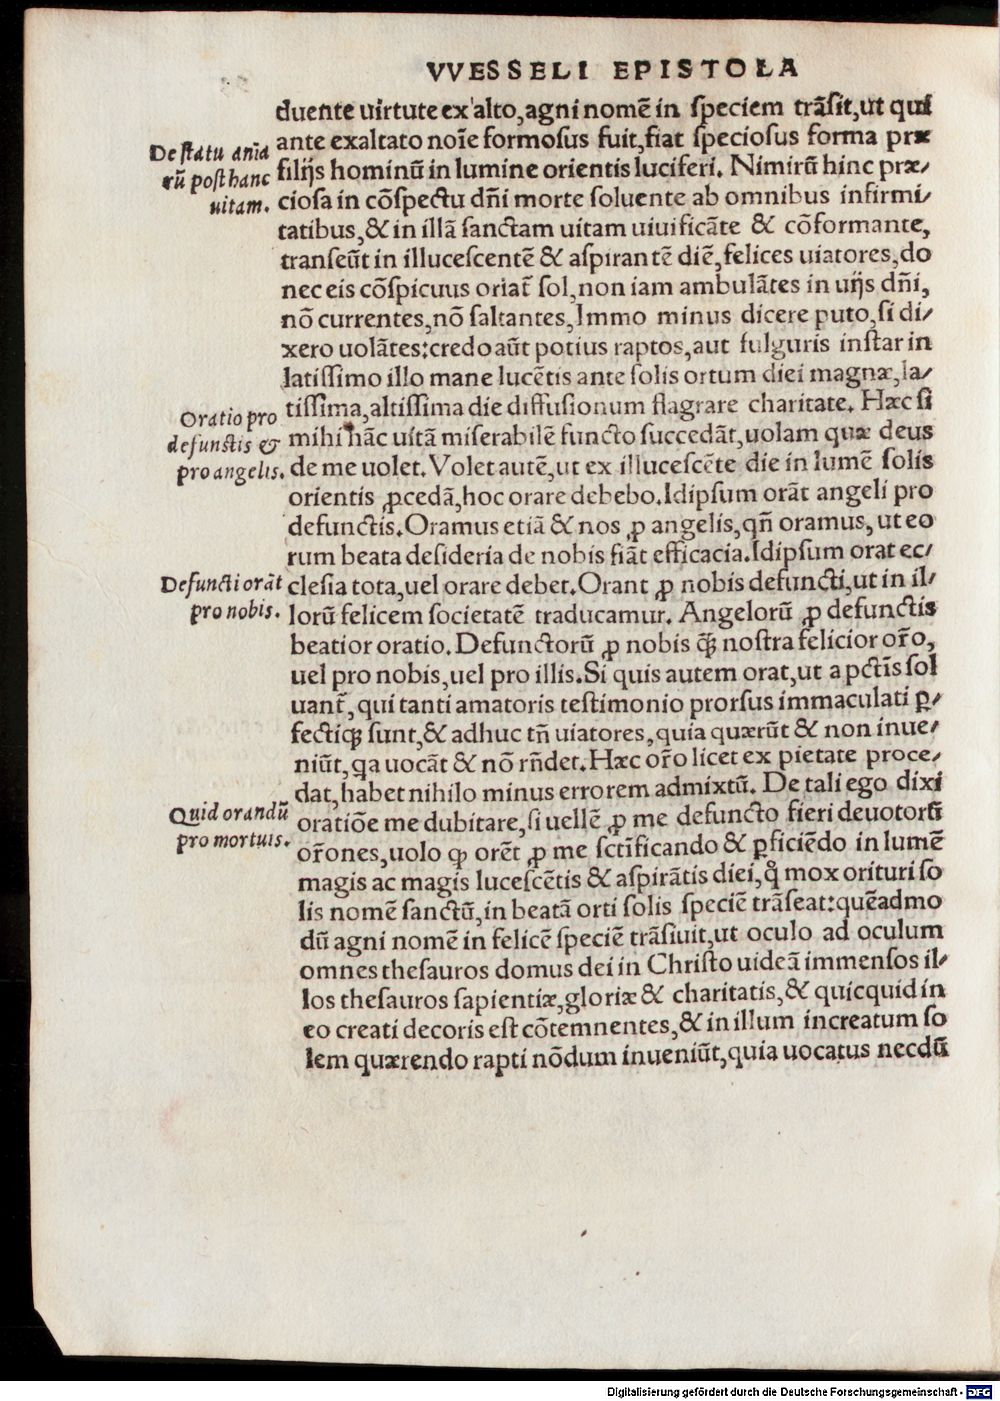 VVESSELI EPISTOLA
duente uirtute ex alto, agni nomē in speciem trāsit, ut qui
ante exaltato noīe formosus fuit, fiat speciosus forma præ
De statu aniā
filijs hominū in lumine orientis luciferi. Nimirū hinc præ/
rū post hanc
ciosa in cōspectu dñi morte soluente ab omnibus infirmi/
uitam.
tatibus, & in illā sanctam uitam uiuificāte & cōformante,
transeūt in illucescentē & aspirantē diē, felices uiatores, do
nec eis cōspicuus oriat̃ sol, non iam ambulātes in uijs dñi,
nō currentes, nō saltantes, Immo minus dicere puto, si di/
xero uolātes: credo aūt potius raptos, aut fulguris instar in
latissimo illo mane lucētis ante solis ortum diei magnæ, la/
tissima, altissima die diffusionum flagrare charitate. Hæc si
Oratio pro
mihi hāc uitā miserabilē functo succedāt, uolam quæ deus
defunctis &
de me uolet. Volet autē, ut ex illucescēte die in lumē solis
pro angelis.
orientis ꝓcedā, hoc orare debebo. Idipsum orāt angeli pro
defunctis. Oramus etiā & nos ꝓ angelis, qñ oramus, ut eo
rum beata desideria de nobis fiāt efficacia. Idipsum orat ec/
clesia tota, uel orare debet. Orant ꝓ nobis defuncti, ut in il/
Defuncti orāt
lorū felicem societatē traducamur. Angelorū ꝓ defunctis
pro nobis.
beatior oratio. Defunctorū ꝓ nobis q̃ꝫ nostra felicior or̃o,
uel pro nobis, uel pro illis. Si quis autem orat, ut a pctīs sol
uant̃, qui tanti amatoris testimonio prorsus immaculati ꝑ/
fectiqꝫ sunt, & adhuc tñ uiatores, quia quærūt & non inue/
niūt, qa uocāt & nō rñdet. Hæc or̃o licet ex pietate proce/
dat, habet nihilo minus errorem admixtū. De tali ego dixi
Quid orandū
oratiōe me dubitare, si uellē ꝓ me defuncto fieri deuotorū
pro mortuis.
or̃ones, uolo ꝙ orēt ꝓ me sctīficando & ꝑficiēdo in lumē
magis ac magis lucescētis & aspirātis diei, q̊ mox orituri so
lis nomē sanctū, in beatā orti solis speciē trāseat: quēadmo
dū agni nomē in felicē speciē trāsiuit, ut oculo ad oculum
omnes thesauros domus dei in Christo uideā immensos il/
los thesauros sapientiæ, gloriæ & charitatis, & quicquid in
eo creati decoris est cōtemnentes, & in illum increatum so
lem quærendo rapti nōdum inueniūt, quia uocatus necdū
Digitalisierung gefördert durch die Deutsche Forschungsgemeinschaft - DFG